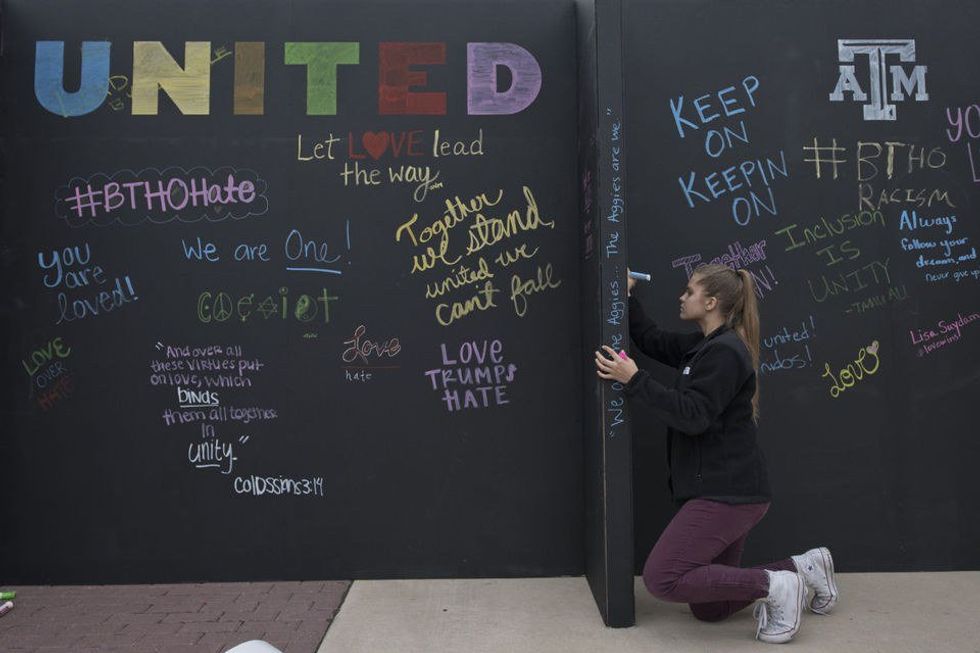 UNITED
Let LOVE lead
the way
#BTHOHate
Together
we stand,
united we
can't fall
you
are
loved!
We are One!
coexist
LOVE
OVER
HATE
Love
hate
LOVE
TRUMPS
HATE
"And over all
these virtues put
on love, which
binds
them all together
in
unity."
Colossians 3:14
"We are the Aggies... The Aggies are we"
ATM
KEEP
ON
KEEPIN
ON
#BTHO
RACISM
YO
L
Together
Inclusion
IS
UNITY
-TAMU ALLI
Always
follow your
dream, and
never give
united!
Love
Lisa Suydam
love wins!